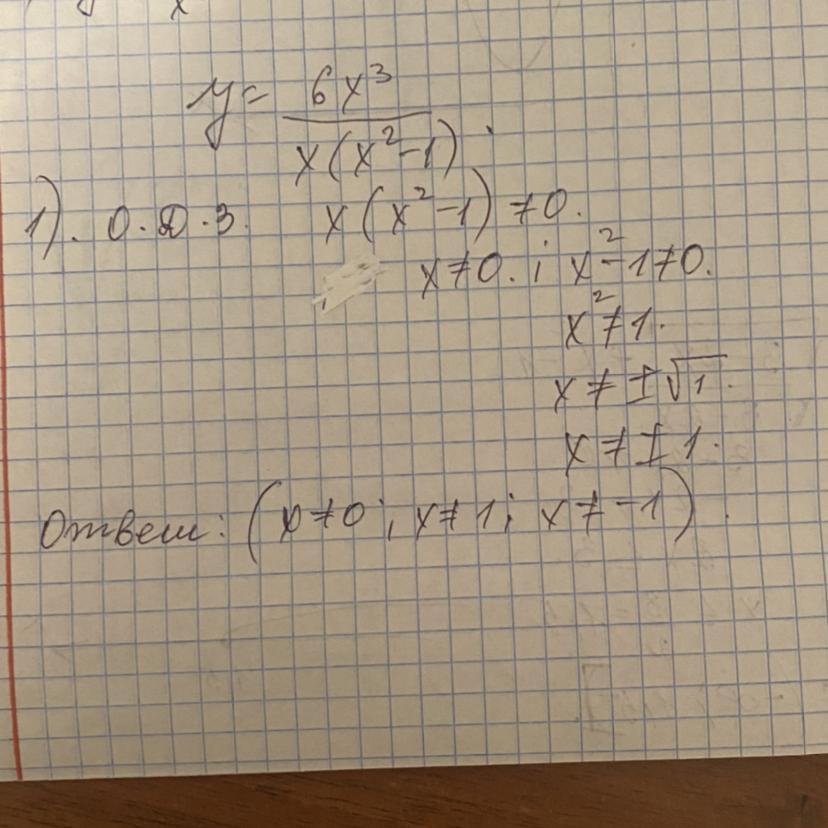 y = 6x³ / x(x²-1)
1). О.Д.З. x(x²-1) ≠ 0.
x ≠ 0. ; x²-1 ≠ 0.
x² ≠ 1.
x ≠ ±√1.
x ≠ ±1.
Ответ: (x ≠ 0 ; x ≠ 1 ; x ≠ -1).